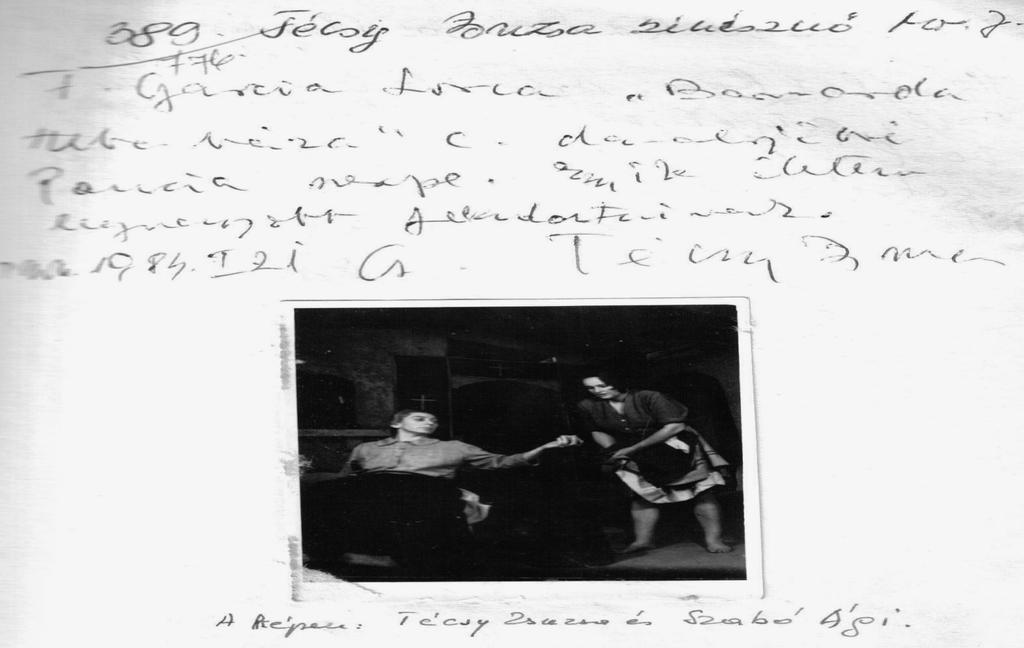 389. Técsy Zsuzsa színésznő
776.
F. Garcia Lorca „Bernarda
Alba háza" c. darabjában
Poncia szerepe. Egyik életem
legnagyobb
1984. I 21 Técsy Zsuzsa
A képen: Técsy Zsuzsa és Szabó Ági.